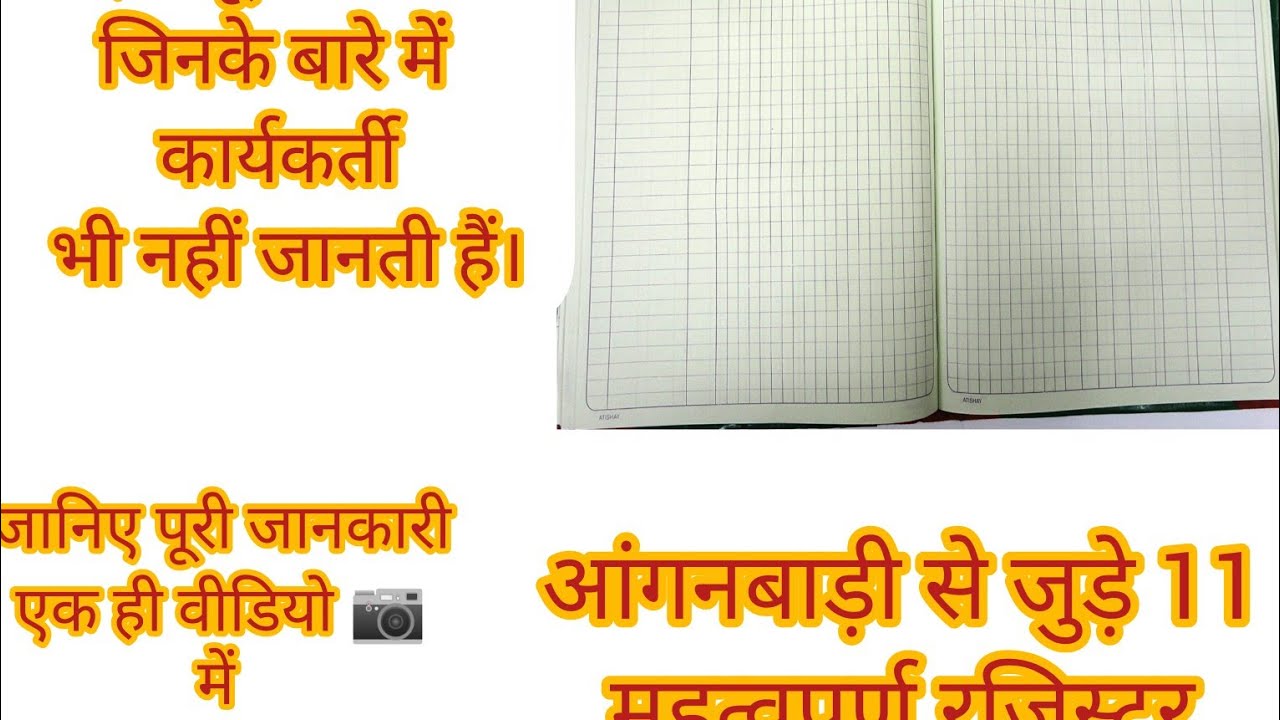 जिनके बारे में
कार्यकर्ती
भी नहीं जानती हैं।
ATISHAY
ATISHAY
जानिए पूरी जानकारी
एक ही वीडियो
में
आंगनबाड़ी से जुड़े 11
महत्वपूर्ण रजिस्टर